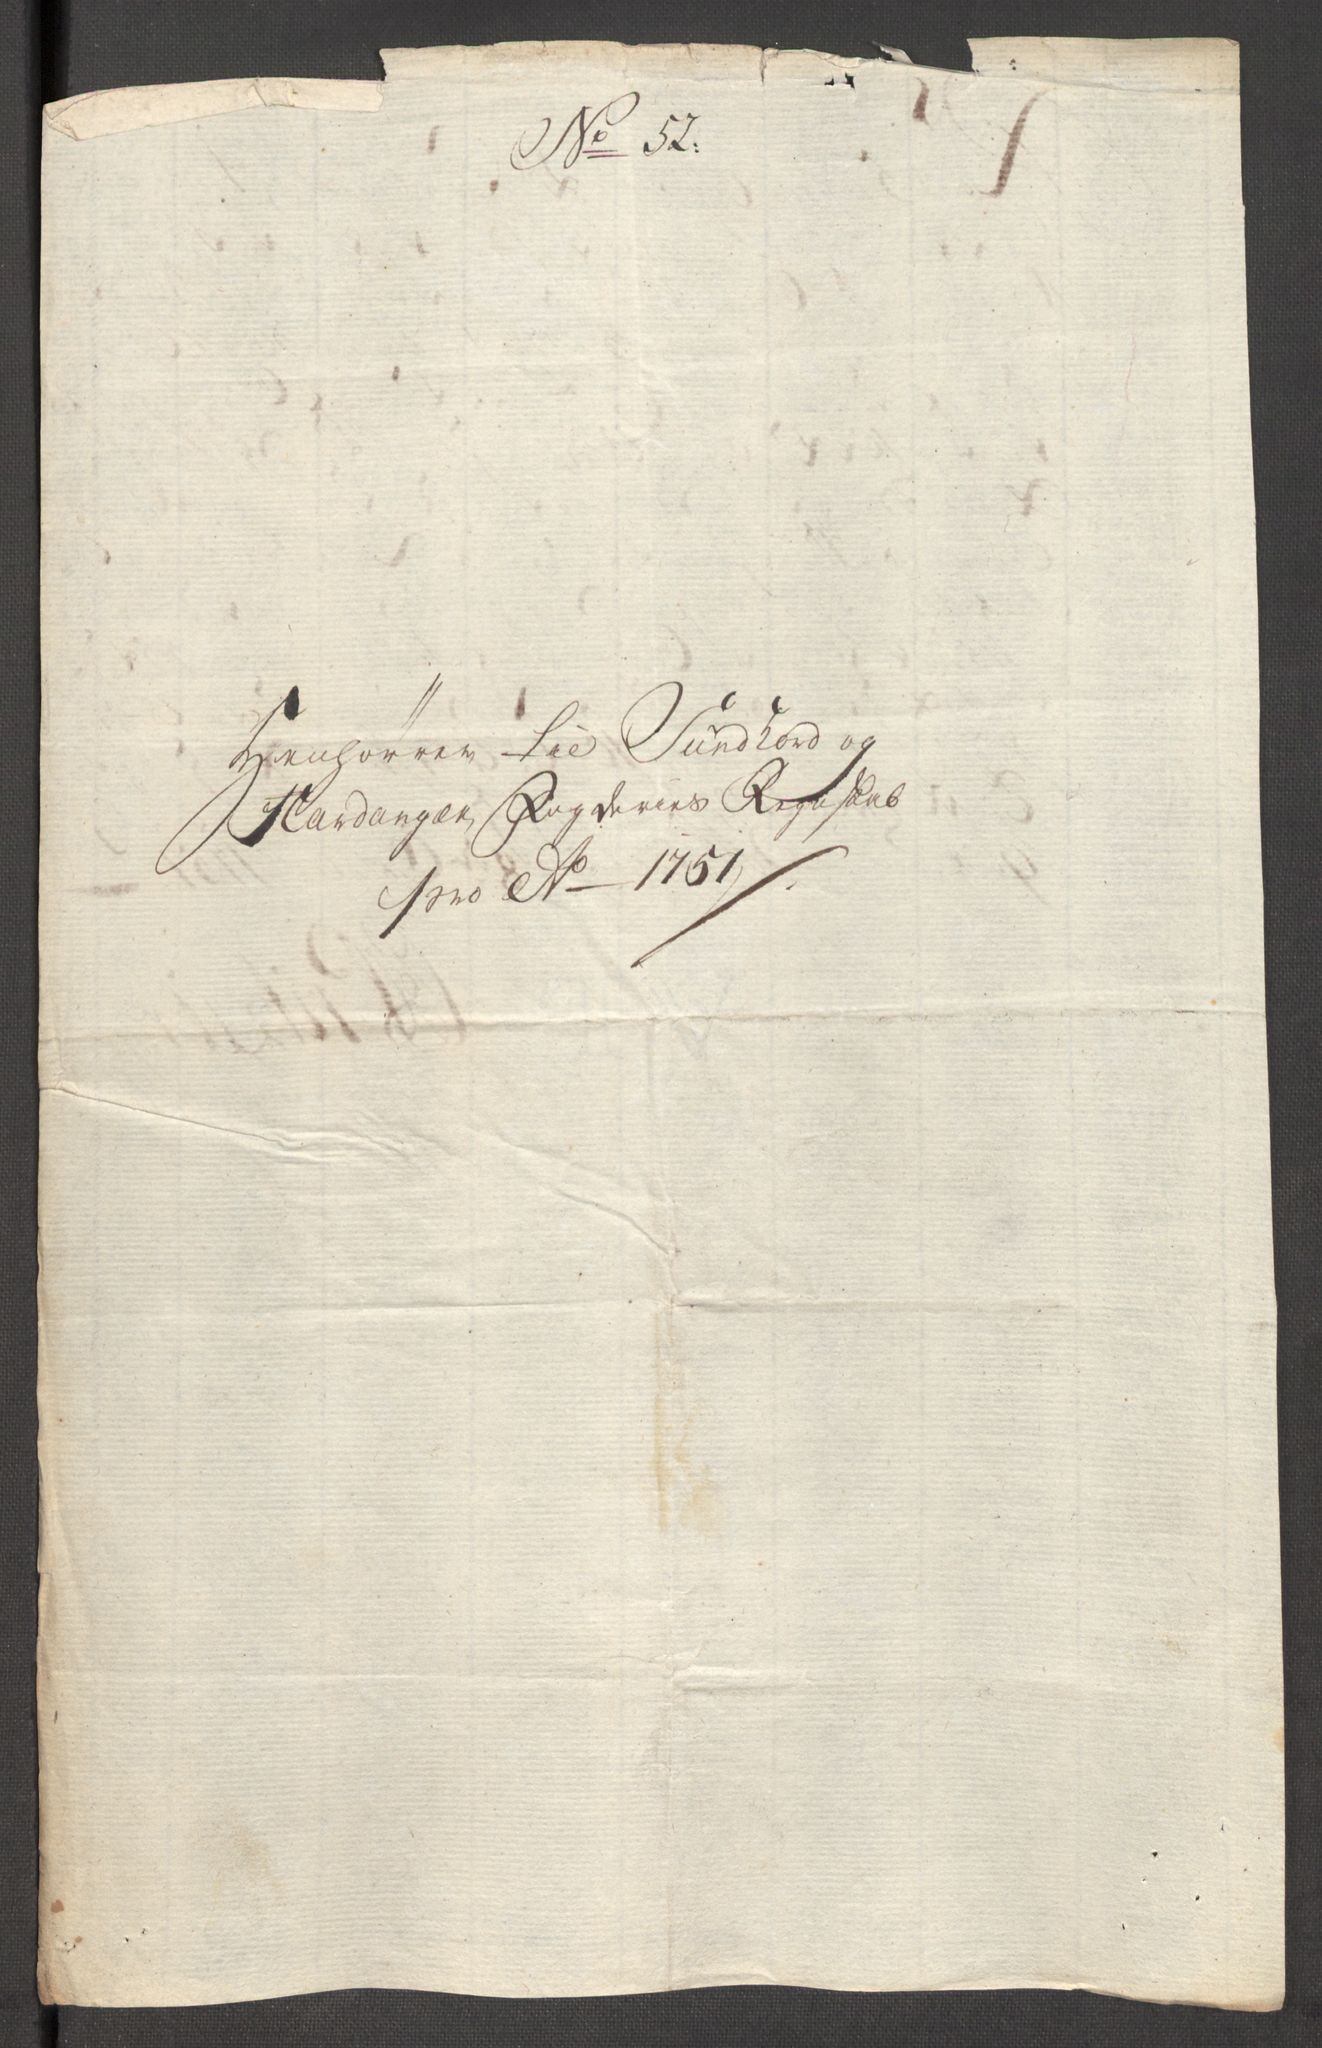 No 52.
Henhörrer til Sundhord og
Hardanger Fogderies Regnskab
pro Ao 1751